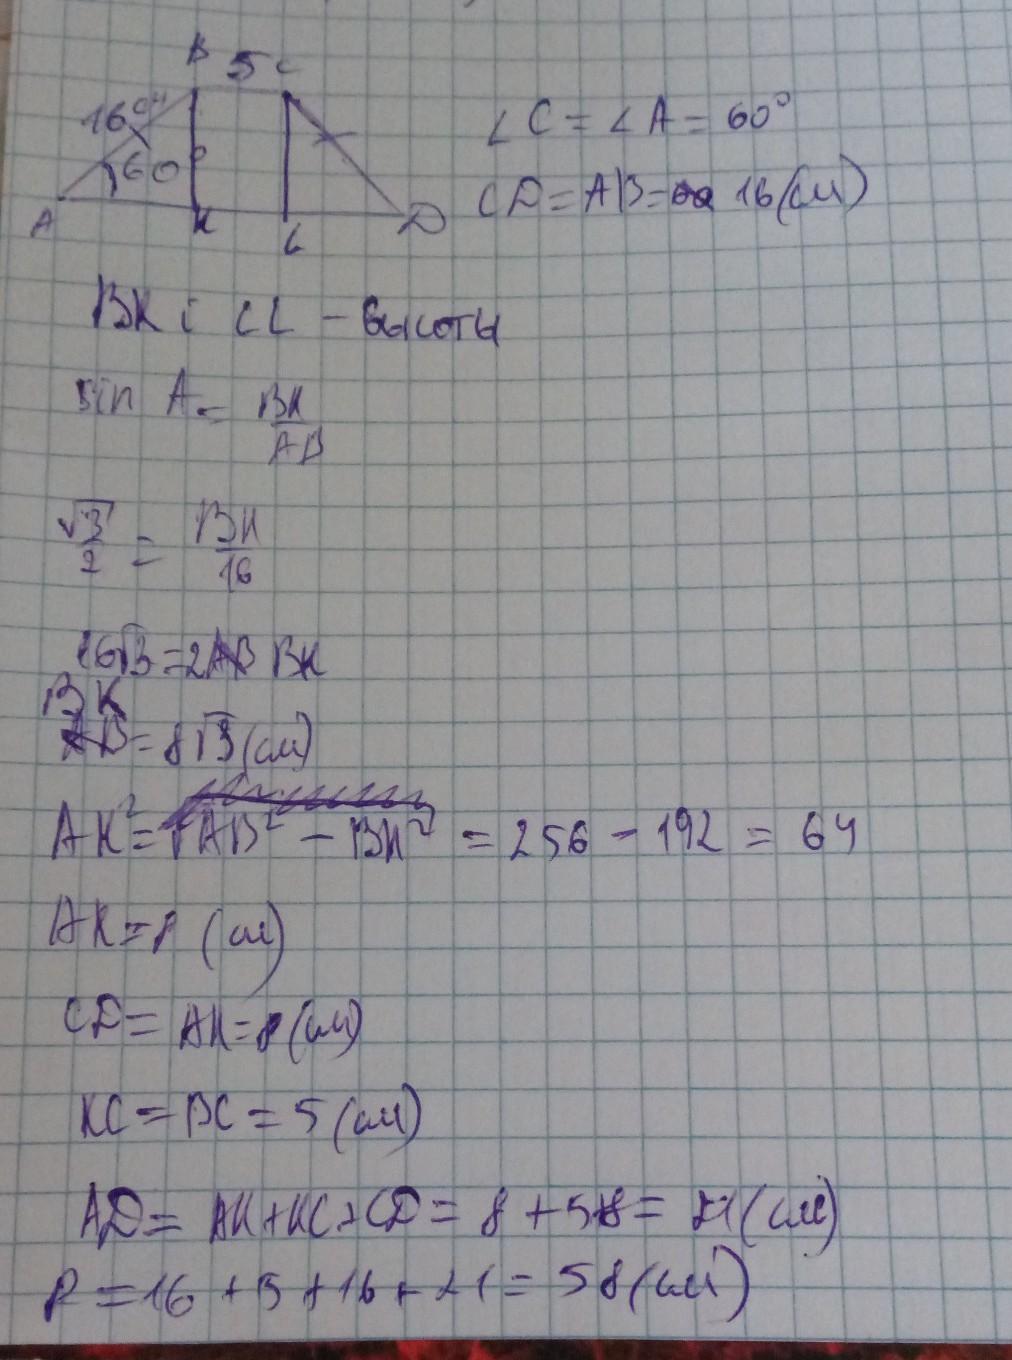 B 5 C
16 см
60°
A K L D
∠C = ∠A = 60°
CD = AB = 16 (см)
BK і CL - высоты
sin A = BK/AB
√3/2 = BK/16
16√3 = 2 BK
BK = 8√3 (см)
AK² = AB² - BK² = 256 - 192 = 64
AK = 8 (см)
CD = AK = 8 (см)
KC = BC = 5 (см)
AD = AK + KC + CD = 8 + 5 + 8 = 21 (см)
P = 16 + 5 + 16 + 21 = 58 (см)